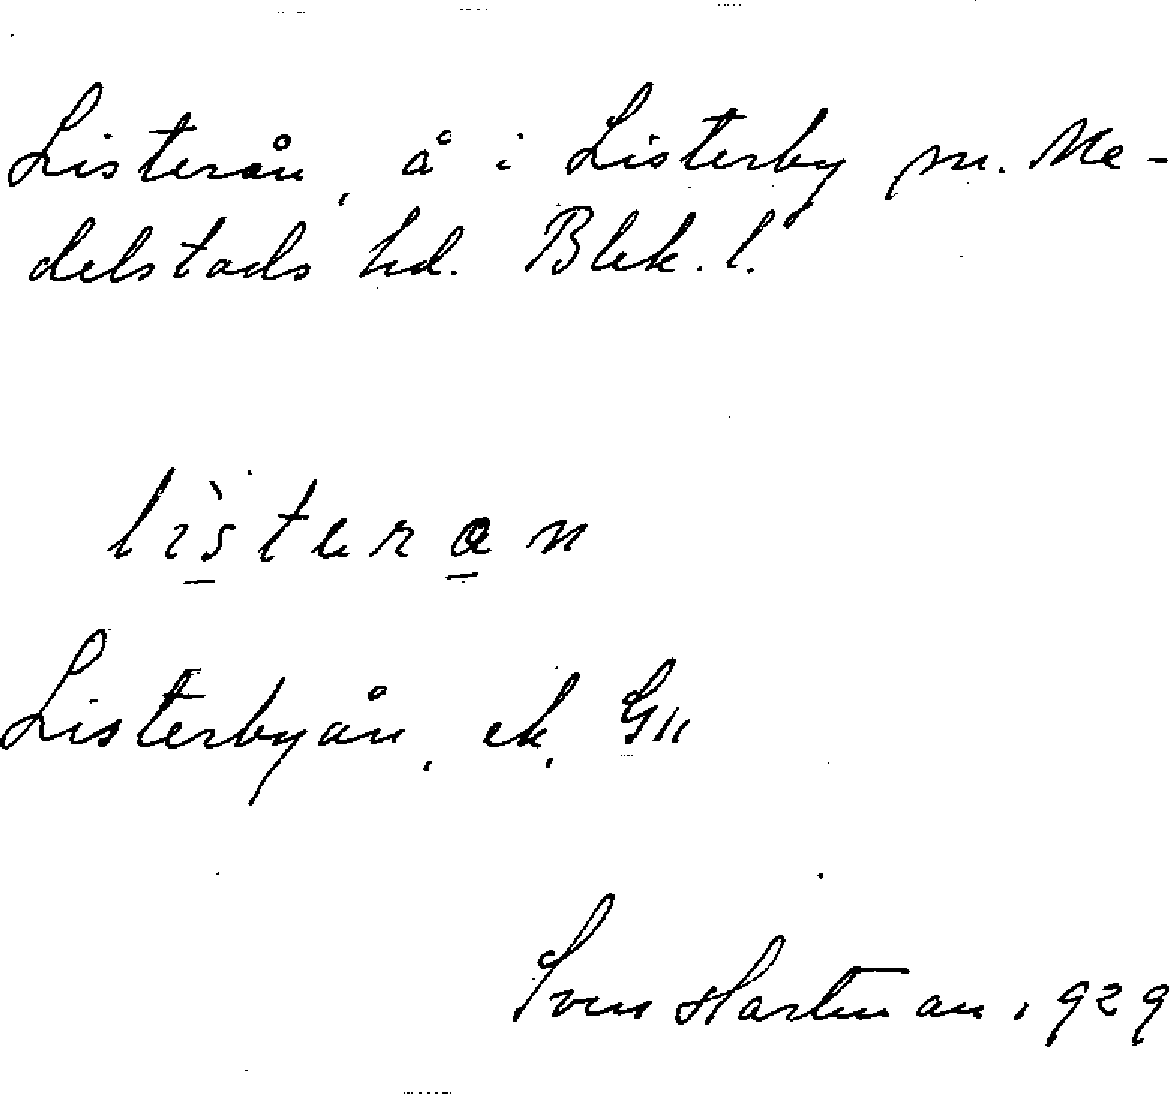 Listerån, å i Listerby sn. Me-
delstads hd. Blek. l.
lìsteran
Listerbyån, ek. G11
Sven Hartman, 1929